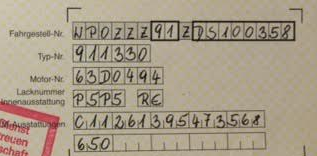 Fahrgestell-Nr. WPOZZZ91ZDS100358
Typ-Nr. 911330
Motor-Nr. 63D0494
Lacknummer
Innenausstattung P5P5 RE
M-Ausstattungen C11261395473568
650
Dienst
treuen
schaft